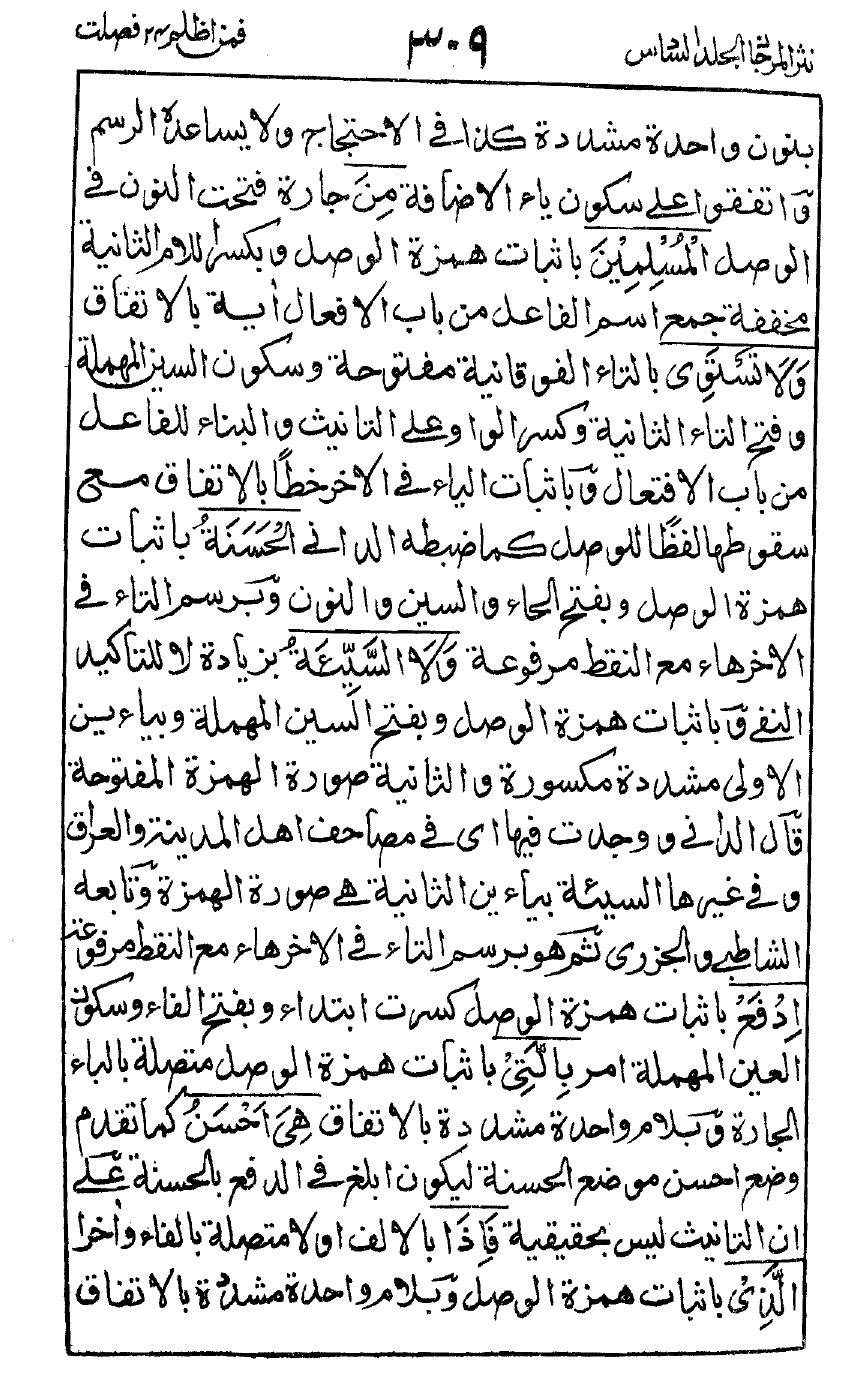 نثر المرجان الجلد السادس ٣٠٩ فمن اظلم ٢٤ فصلت
بنون واحدة مشددة كذا في الاحتجاج ولا يساعدة الرسم
وّاتفقوا على سكون ياء الاضافة مِنَ جارة فتحت النون في
الوصل الْمُسْلِمِيْنَ باثبات همزة الوصل وبكسر اللام الثانية
مخففة جمع اسم الفاعل من باب الافعال أية بالاتفاق
وَلَا تَسْتَوِى بالتاء الفوقانية مفتوحة وسكون السين المهملة
وفتح التاء الثانية وكسر الواو على التانيث والبناء للفاعل
من باب الافتعال وّباثبات الياء في الاخر خطاً بالاتفاق مع
سقوطها لفظًا للوصل كما ضبطه الداني الْحَسَنَةُ باثبات
همزة الوصل وبفتح الحاء والسين والنون وّبرسم التاء في
الاخر هاء مع النقط مرفوعة وَلَا السَّيِّئَةُ بزيادة لا للتأكيد
النفي وّباثبات همزة الوصل وبفتح السين المهملة وبياءين
الاولى مشددة مكسورة والثانية صورة الهمزة المفتوحة
قّال الداني ووجدت فيها اى في مصاحف اهل المدينة والعراق
وفي غيرها السيئة بياءين الثانية هي صورة الهمزة وّتابعه
الشاطبي والجزرى ثم هو برسم التاء في الاخر هاء مع النقط مرفوعة
اِدْفَعْ باثبات همزة الوصل كسرت ابتداء وبفتح الفاء وسكون
العين المهملة امر بِالَّتِيْ باثبات همزة الوصل متصلة بالباء
الجارة وّبلام واحدة مشددة بالاتفاق هِيَ اَحْسَنُ كما تقدم
وضع احسن موضع الحسنة ليكون ابلغ في الدفع بالحسنة عّلى
ان التانيث ليس بحقيقية فَاِذَا بالالف اولا متصلة بالفاء وأخرا
الَّذِيْ باثبات همزة الوصل وّبلام واحدة مشددة بالاتفاق